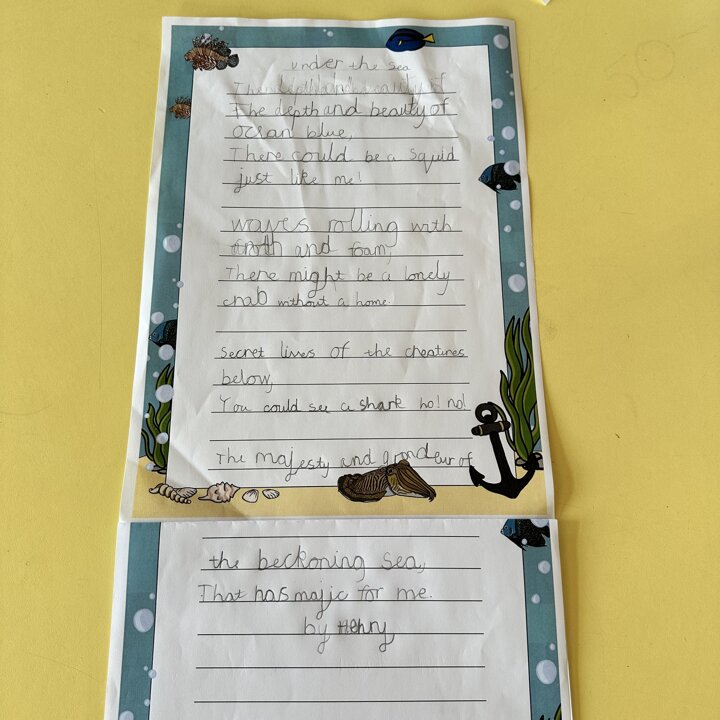 under the sea
The depth and beauty of
The depth and beauty of
ocean blue,
There could be a squid
just like me!
waves rolling with
froth and foam,
There might be a lonely
crab without a home.
secret lives of the cheatures
below,
You could see a shark ho! no!
The majesty and grandeur of
the beckoning sea,
That has majic for me.
by Henry